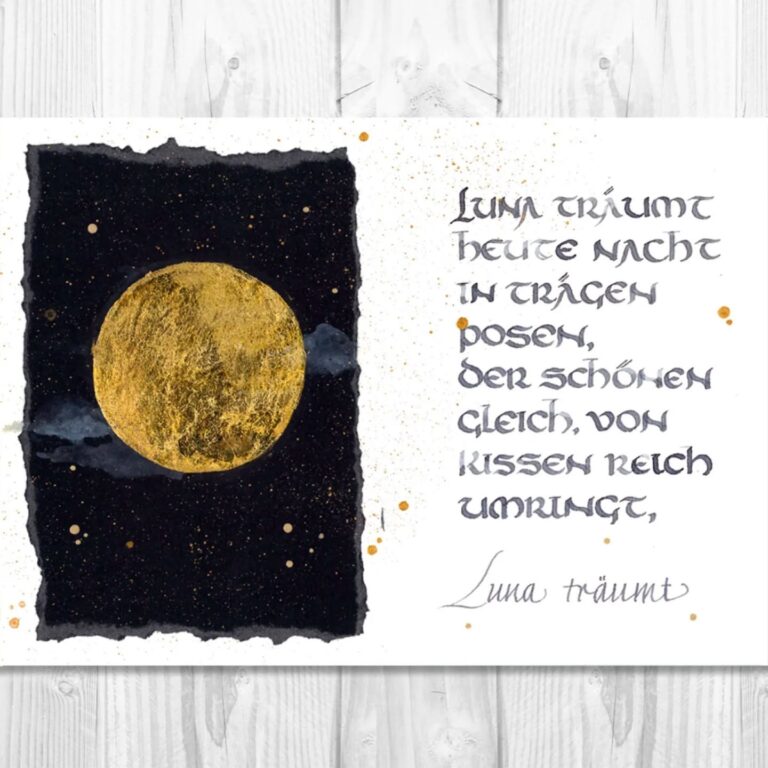 Luna träumt
heute nacht
in trägen
posen,
der schönen
gleich, von
kissen reich
umringt,
Luna träumt